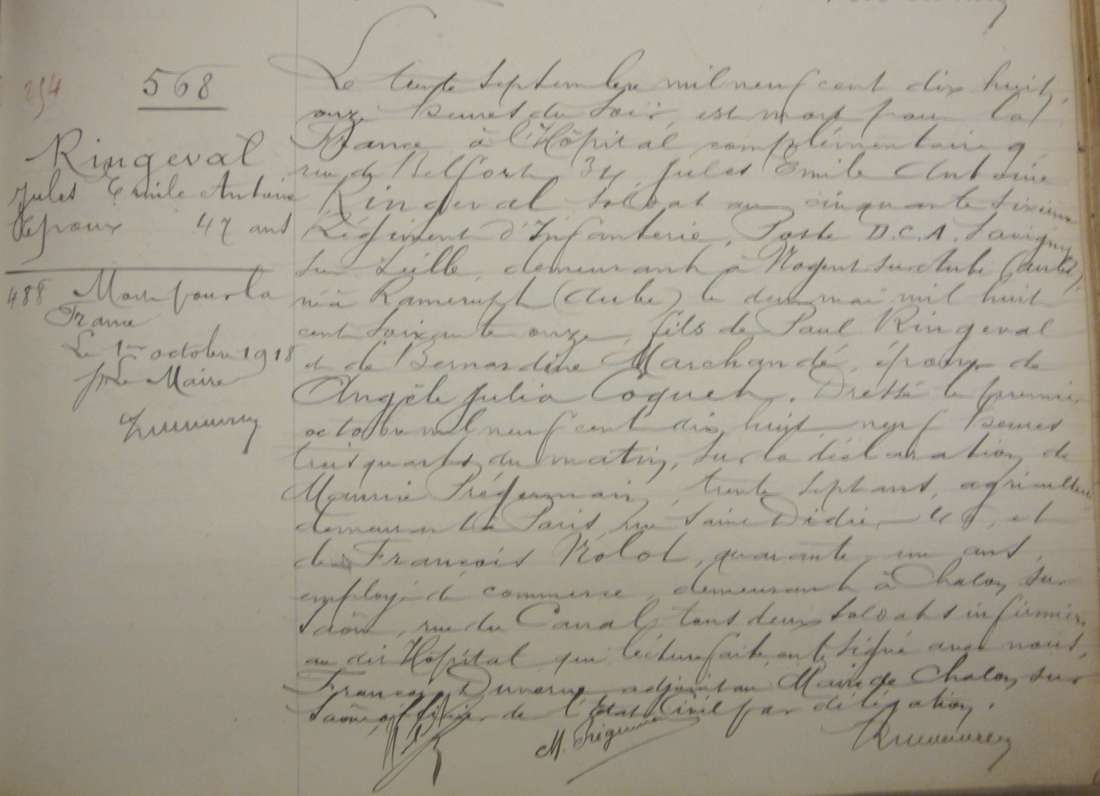 254
568
Ringeval
Jules Emile Antoine
Epoux 47 ans
488 Mort pour la
France
Le 1er octobre 1918
pr le Maire
Le trente Septembre mil neuf cent dix huit,
onze heures du Soir, est mort pour la
France à l'Hôpital complémentaire 9
rue de Belfort 34 Jules Emile Antoine
Ringeval Soldat au cinquante sixième
Régiment d'Infanterie, Poste D.C.A. Savigny
sur Seille, demeurant à Nogent sur Aube (Aube),
né à Ramerupt (Aube) le deux mai mil huit
cent Soixante onze, fils de Paul Ringeval
et de Bernardine Marchandé, époux de
Angèle Julia Coquet. Dressé le premier
octobre mil neuf cent dix huit, neuf heures
trois quarts du matin, sur la déclaration de
Maurice Prégermain, trente Sept ans, agriculteur
demeurant à Paris, rue Saint Didier, et
de François Rolot, quarante un ans,
employé de commerce, demeurant à Chalon sur
Saône, rue du Canal, tous deux Soldats infirmiers
au dit Hôpital qui lecture faite, ont Signé avec nous,
François Duverne adjoint au Maire de Chalon sur
Saône, officier de l'Etat Civil par délégation.